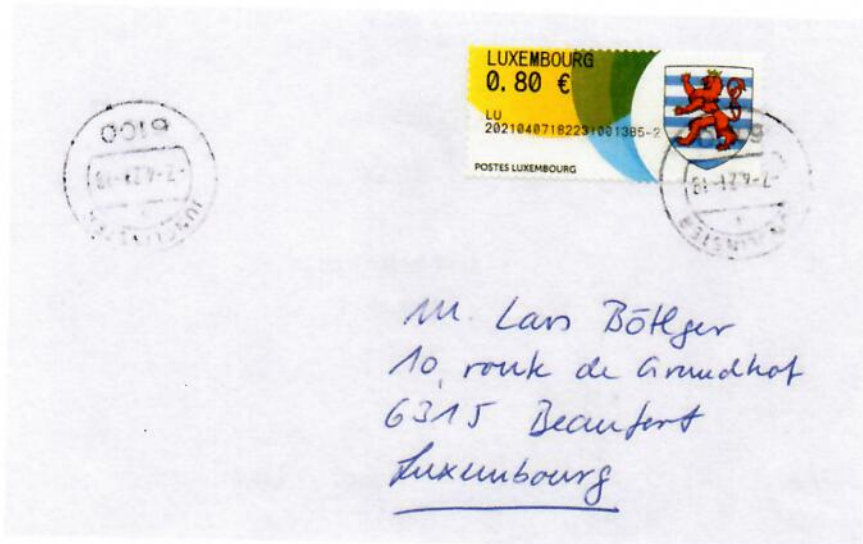 LUXEMBOURG
0.80 €
LU
20210407182231001385-2
POSTES LUXEMBOURG
6100
-7-4.21-18
JUNGLINSTER
-7-4.21-18
JUNGLINSTER
M. Lars Böttger
10, route de Grundhof
6315 Beaufort
Luxembourg